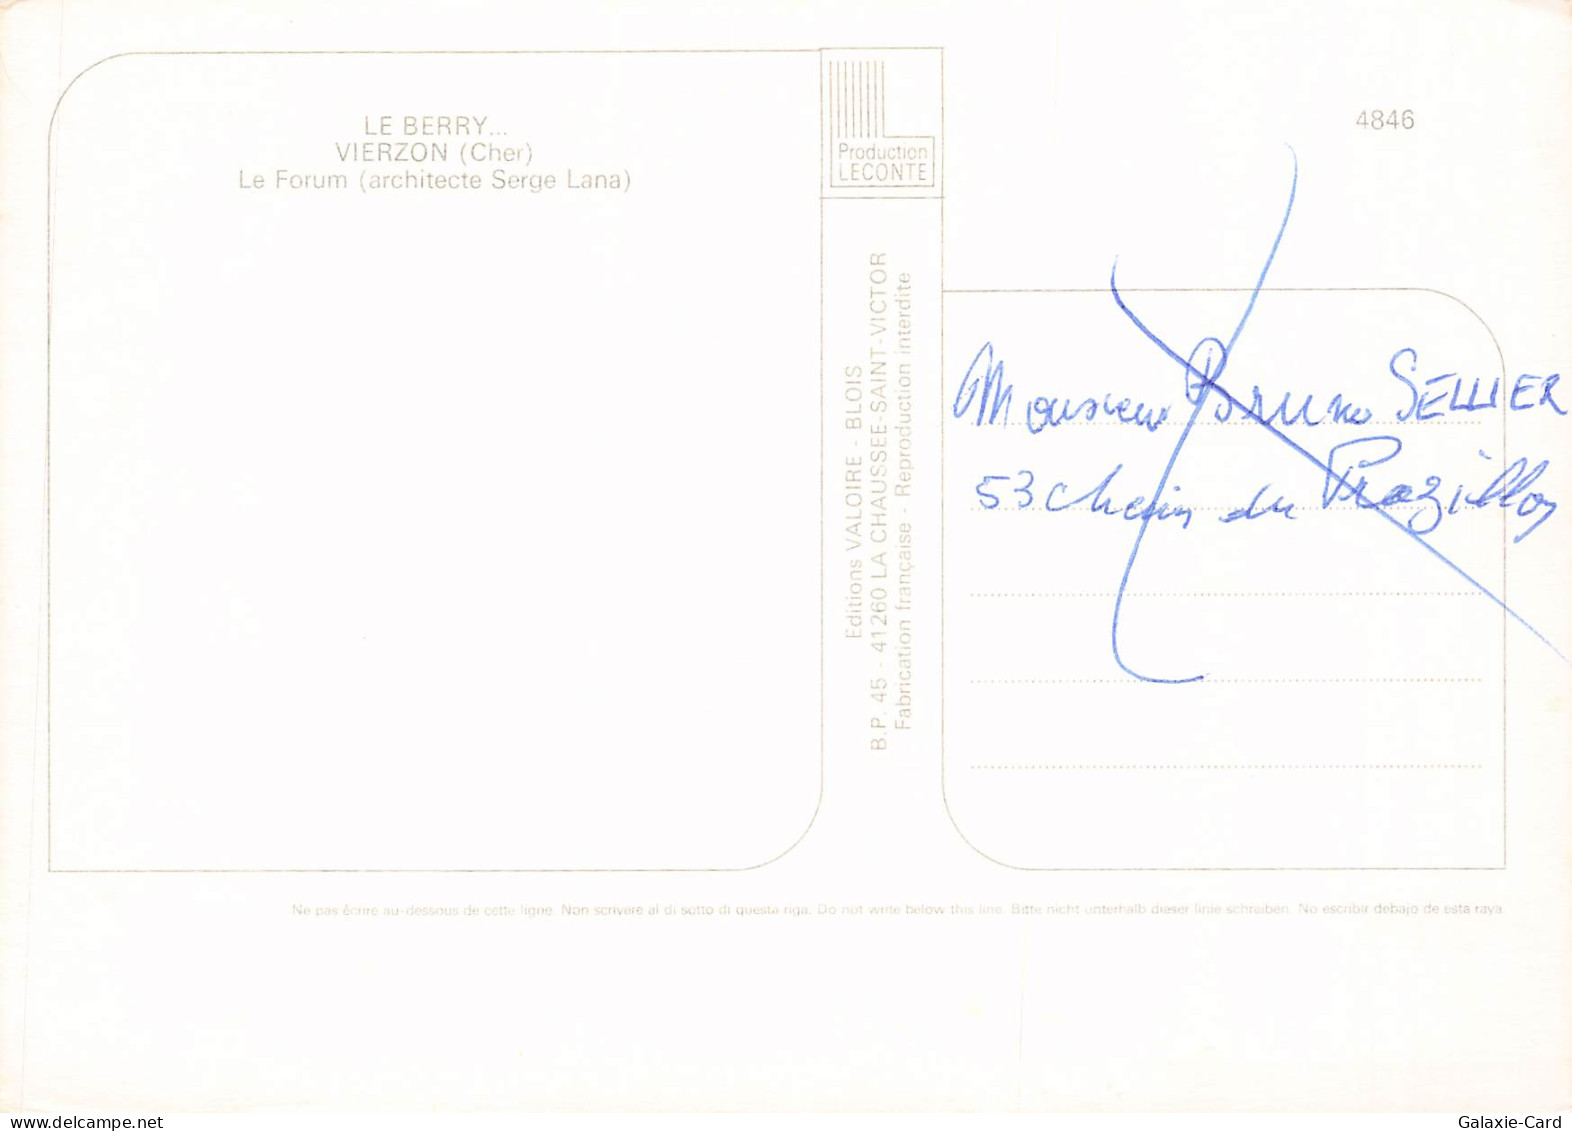 LE BERRY...
VIERZON (Cher)
Le Forum (architecte Serge Lana)
Production
LECONTE
4846
Editions VALOIRE - BLOIS
B.P. 45 - 41260 LA CHAUSSEE-SAINT-VICTOR
Fabrication française - Reproduction interdite
Monsieur Bruno SELLIER
53 Chemin du Prazillon
Ne pas écrire au-dessous de cette ligne. Non scrivere al di sotto di questa riga. Do not write below this line. Bitte nicht unterhalb dieser linie schreiben. No escribir debajo de esta raya.
delcampe.net
Galaxie-Card